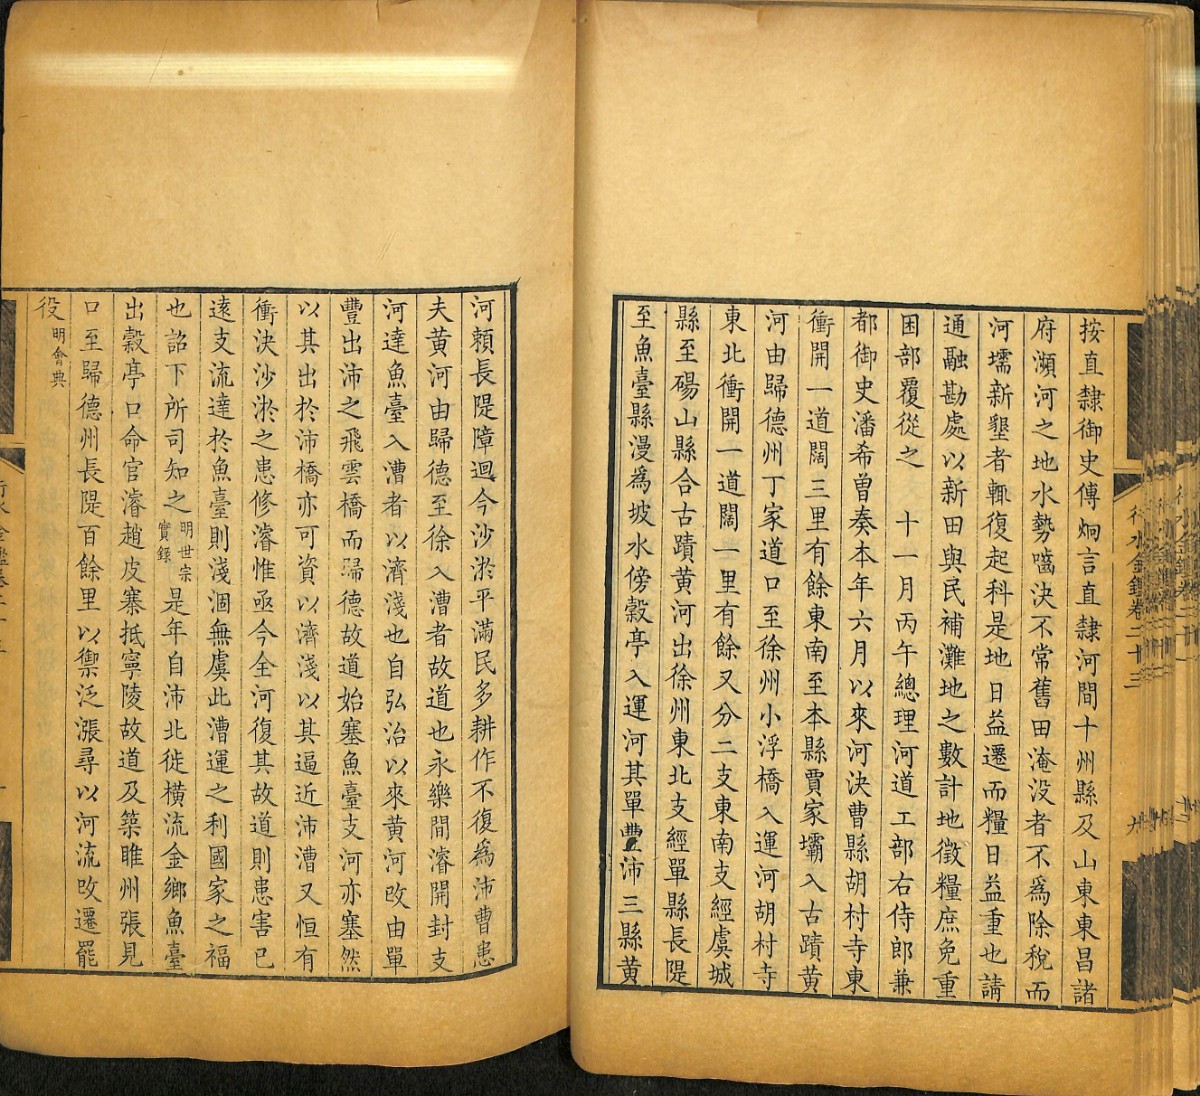 按直隸御史傅炯言直隸河間十州縣及山東東昌諸
府瀕河之地水勢嚙決不常舊田淹没者不爲除稅而
河壖新墾者輒復起科是地日益遷而糧日益重也請
通融勘處以新田與民補灘地之數計地徵糧庶免重
困部覆從之 十一月丙午總理河道工部右侍郎兼
都御史潘希曾奏本年六月以來河決曹縣胡村寺東
衝開一道闊三里有餘東南至本縣賈家壩入古蹟黄
河由歸德州丁家道口至徐州小浮橋入運河胡村寺
東北衝開一道闊一里有餘又分二支東南支經虞城
縣至碭山縣合古蹟黄河出徐州東北支經單縣長隄
至魚臺縣漫爲坡水傍穀亭入運河其單豐沛三縣黄
河賴長隄障迴今沙淤平滿民多耕作不復爲沛曹患
夫黄河由歸德至徐入漕者故道也永樂間濬開封支
河達魚臺入漕者以濟淺也自弘治以來黄河改由單
豐出沛之飛雲橋而歸德故道始塞魚臺支河亦塞然
以其出於沛橋亦可資以濟淺以其逼近沛漕又恒有
衝決沙淤之患修濬惟亟今全河復其故道則患害已
遠支流達於魚臺則淺涸無虞此漕運之利國家之福
也詔下所司知之明世宗實錄是年自沛北徙橫流金鄉魚臺
出穀亭口命官濬趙皮寨抵寧陵故道及築睢州張見
口至歸德州長隄百餘里以禦泛漲尋以河流改遷罷
役明會典
行水金鑑卷二十三
九